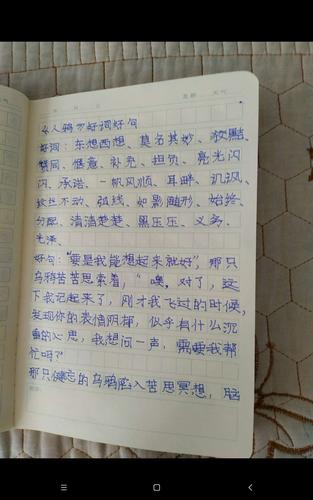 《人鸦》好词好句
好词：东想西想、莫名其妙、狡黠、
赞同、惬意、补充、担负、亮光闪
闪、承诺、一帆风顺、耳畔、讥讽、
纹丝不动、弧线、如影随形、始终、
分配、清清楚楚、黑压压、义务、
光泽、
好句："要是我能想起来就好"，那只
乌鸦苦苦思索着，"噢，对了，这
下我记起来了，刚才我飞过的时候，
发现你的表情阴郁，似乎有什么沉
重的心思，我想问一声，需要我帮
忙吗？
那只健忘的乌鸦陷入苦思冥想，脑